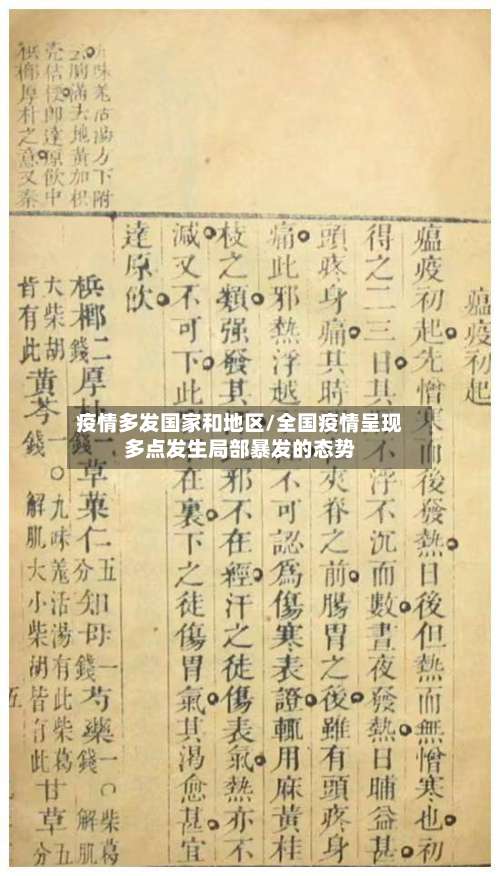 疫情多发国家和地区/全国疫情呈现
多点发生局部暴发的态势
九味羗活湯方下附
云胸滿去地黃加枳
壳桔梗即達原飲中
檳榔厚朴之意又秦
瘟疫初起
瘟疫初起先憎寒而後發熱日後但熱而無憎寒也初
得之二三日其不浮不沉而數晝夜發熱日晡益甚
頭疼身痛其時夾脊之前腸胃之後雖有頭疼身
痛此邪熱浮越不可認為傷寒表證輒用麻黃桂
枝之類强發其邪不在經汗之徒傷表氣熱亦不
減又不可下此在裏下之徒傷胃氣其渴愈甚宜
達原飲
檳榔二錢厚朴一錢草菓仁五分知母一錢芍藥一錢柴葛解肌
大柴胡皆有此黃芩一錢九味羗活湯有此柴葛解肌大小柴胡皆有此甘草五分